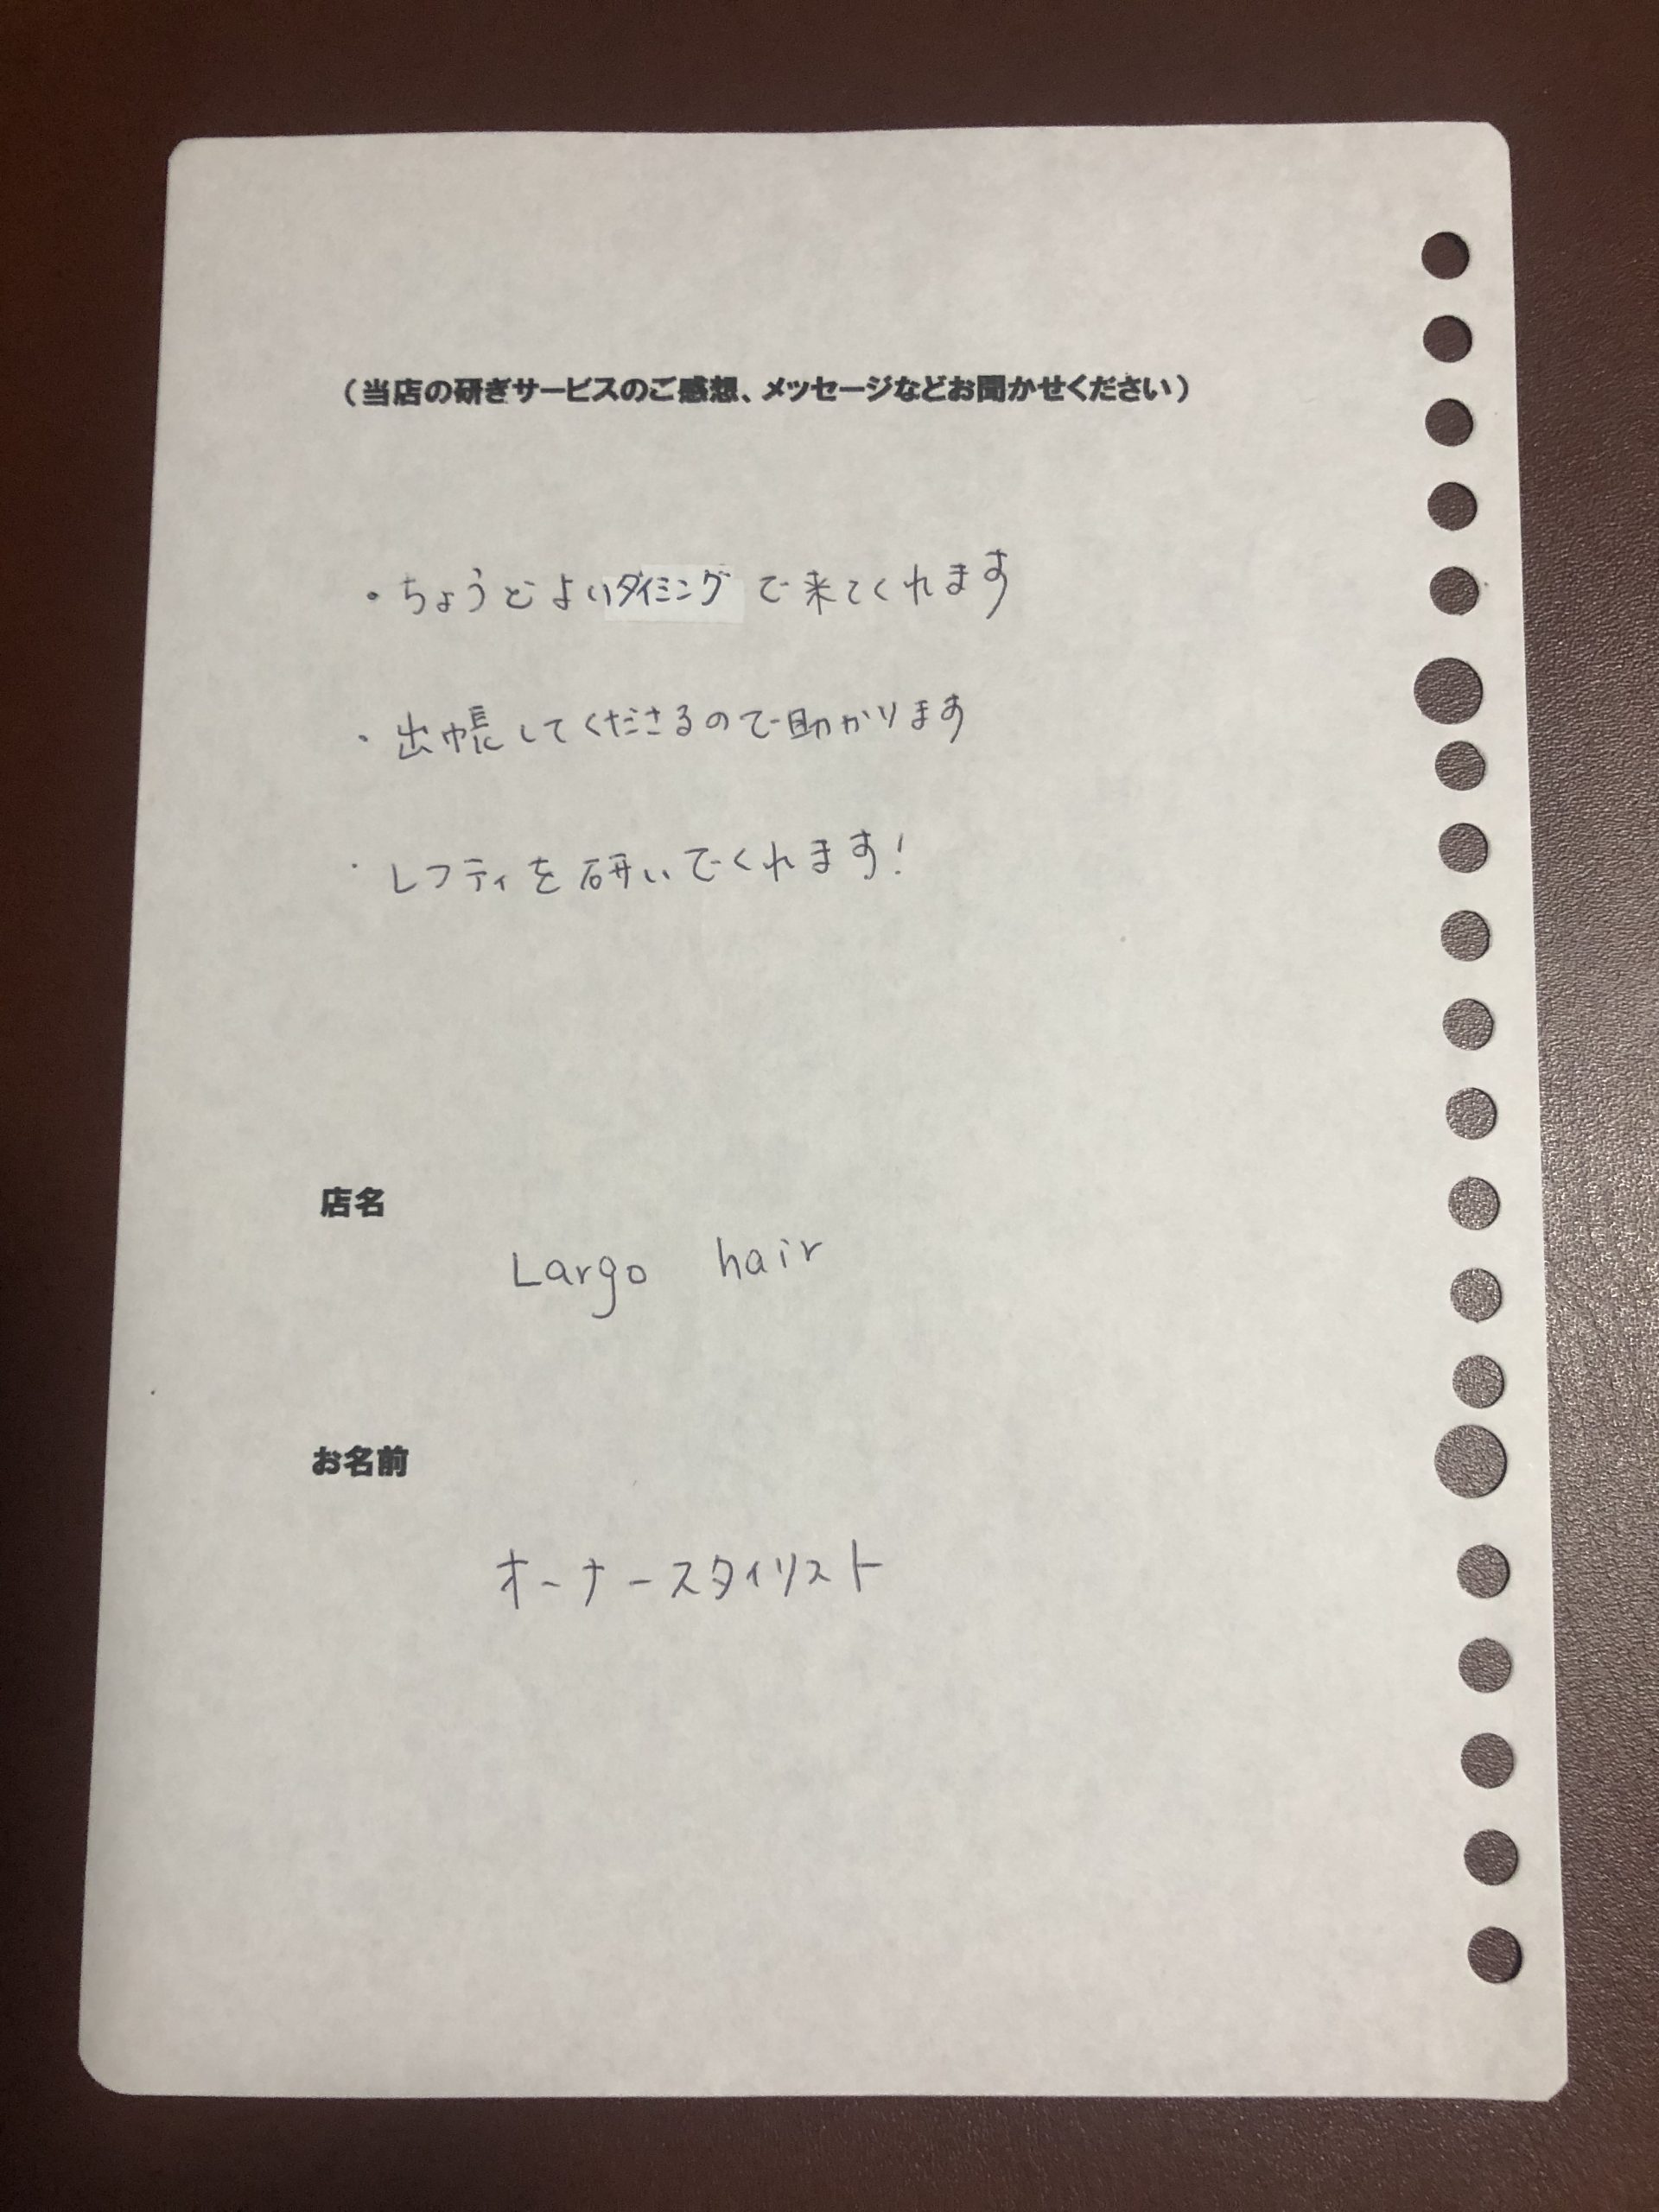 （当店の研ぎサービスのご感想、メッセージなどお聞かせください）
・ちょうどよいタイミングで来てくれます
・出帳してくださるので助かります
・レフティを研いでくれます！
店名
Largo hair
お名前
オーナースタイリスト